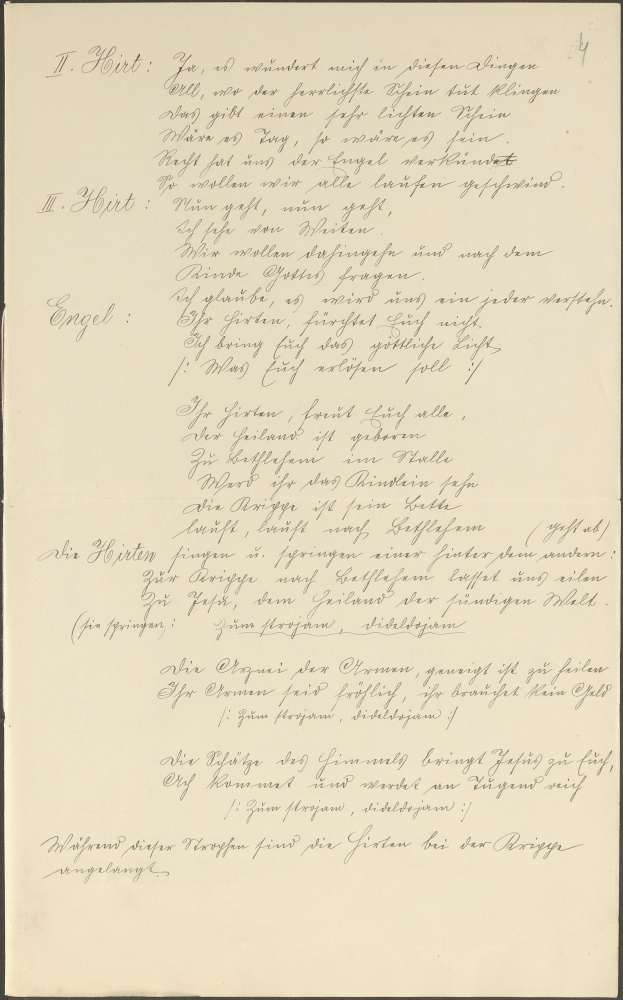 4
II. Hirt: Ja, es wundert mich in diesen Dingen
All, wo der herrlichste Schein tut klingen
Das gibt einen sehr lichten Schein
Wäre es Tag, so wäre es fein.
Recht hat uns der Engel verkündet
So wollen wir alle laufen geschwind.
III. Hirt: Nun geht, nun geht,
Ich sehe von Weiten.
Wir wollen dahingehn und nach dem
Kinde Gottes fragen.
Ich glaube, es wird uns ein jeder verstehn.
Engel: Ihr Hirten, fürchtet Euch nicht.
Ich bring Euch das göttliche Licht
/: Was Euch erlösen soll :/
Ihr Hirten, freut Euch alle,
Der Heiland ist geboren
Zu Bethlehem im Stalle
Werd ihr das Kindlein sehn
Die Krippe ist sein Bette
lauft, lauft nach Bethlehem (geht ab)
Die Hirten singen u. springen einer hinter dem andern:
Zur Krippe nach Bethlehem lasset uns eilen
Zu Jesu, dem Heiland der sündigen Welt.
(sie springen): Zum strojam, dideldojam
Die Arznei der Armen, geneigt ist zu heilen
Ihr Armen seid fröhlich, ihr brauchet kein Geld
/: Zum strojam, dideldojam :/
Die Schätze des Himmels bringt Jesus zu Euch,
Ach kommet und werdet an Tugend reich
/: Zum strojam, dideldojam :/
Während dieser Strophen sind die Hirten bei der Krippe
angelangt.